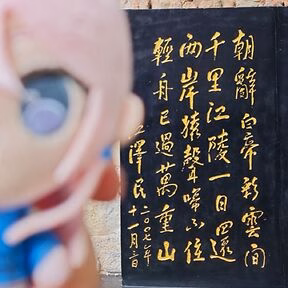 朝辭白帝彩雲間
千里江陵一日還
兩岸猿聲啼不住
輕舟已過萬重山
江澤民
二〇〇七年
十一月